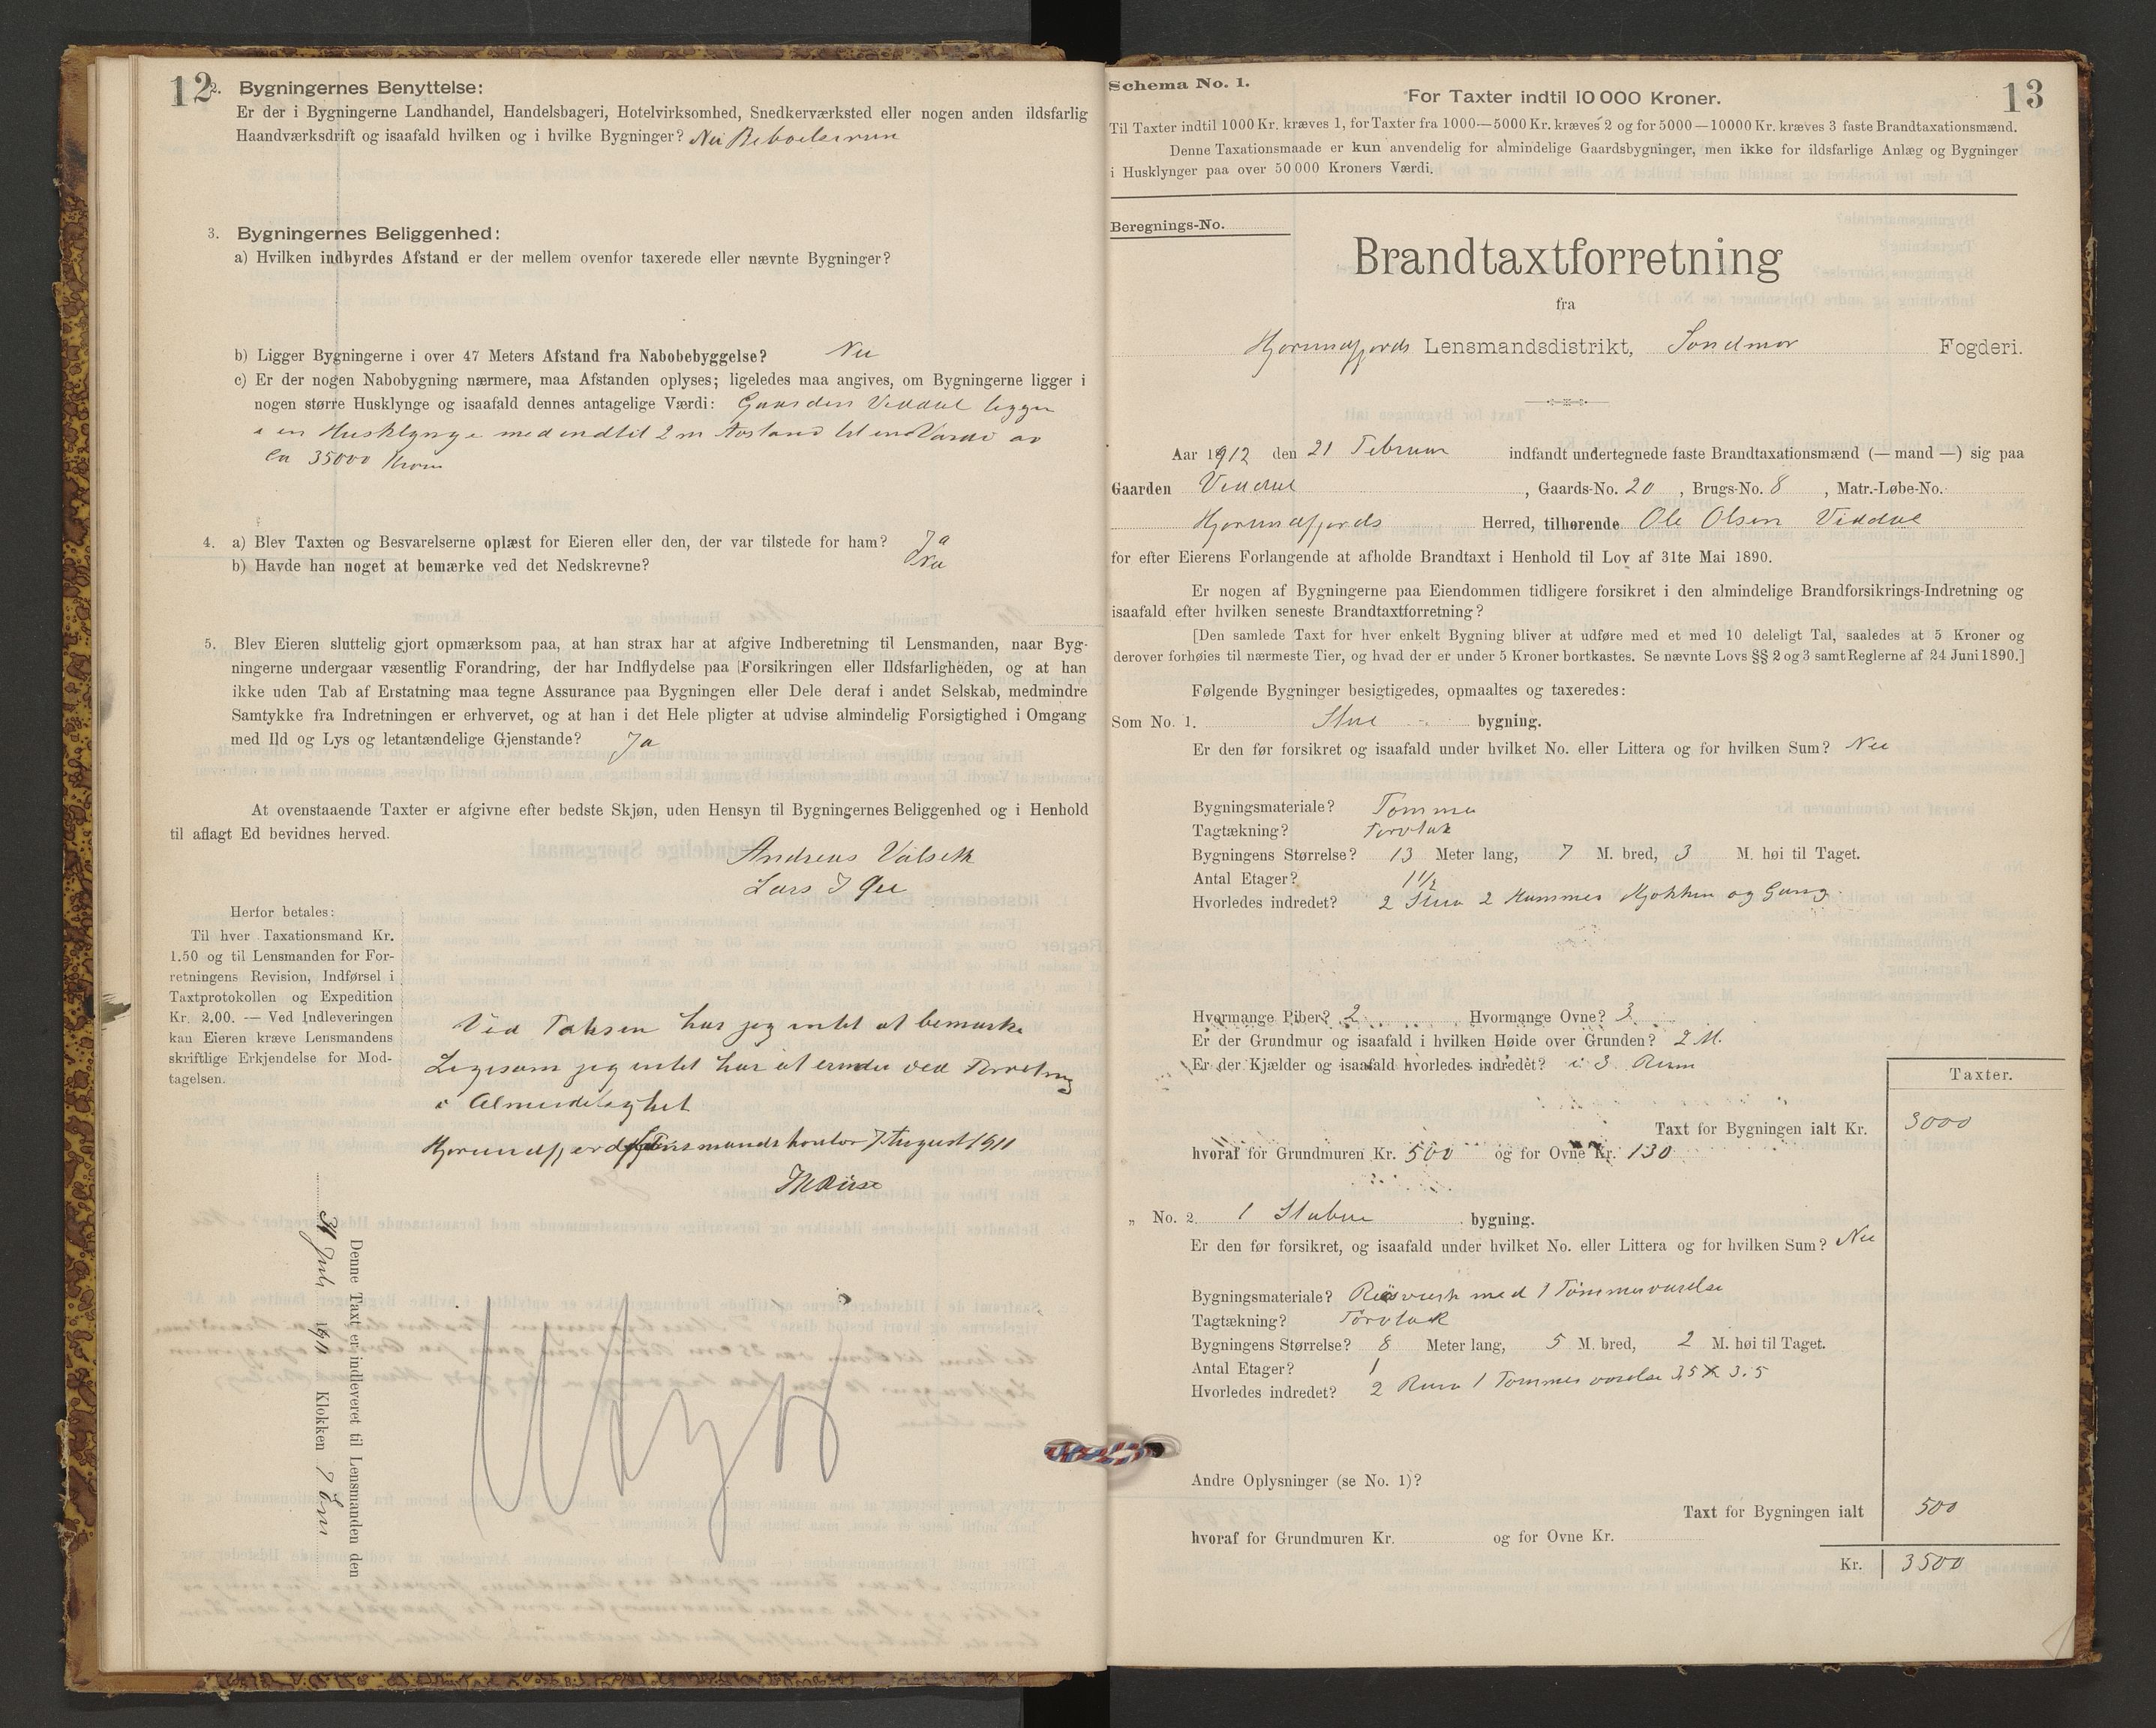 12
2. Bygningernes Benyttelse:
Er der i Bygningerne Landhandel, Handelsbageri, Hotelvirksomhed, Snedkerværksted eller nogen anden ildsfarlig
Haandværksdrift og isaafald hvilken og i hvilke Bygninger? Nei Beboelsesrum
3. Bygningernes Beliggenhed:
a) Hvilken indbyrdes Afstand er der mellem ovenfor taxerede eller nævnte Bygninger?
b) Ligger Bygningerne i over 47 Meters Afstand fra Nabobebyggelse? Nei
c) Er der nogen Nabobygning nærmere, maa Afstanden oplyses; ligeledes maa angives, om Bygningerne ligger i
nogen større Husklynge og isaafald dennes antagelige Værdi: Gaarden Viddal ligger
i en Husklynge med indtil 2 m Avstand til en Værdi av
Ca 35000 Kroner
4. a) Blev Taxten og Besvarelserne oplæst for Eieren eller den, der var tilstede for ham? Ja
b) Havde han noget at bemærke ved det Nedskrevne? Nei
5. Blev Eieren sluttelig gjort opmærksom paa, at han strax har at afgive Indberetning til Lensmanden, naar Byg-
ningerne undergaar væsentlig Forandring, der har Indflydelse paa Forsikringen eller Ildsfarligheden, og at han
ikke uden Tab af Erstatning maa tegne Assurance paa Bygningen eller Dele deraf i andet Selskab, medmindre
Samtykke fra Indretningen er erhvervet, og at han i det Hele pligter at udvise almindelig Forsigtighed i Omgang
med Ild og Lys og letantændelige Gjenstande? Ja
At ovenstaaende Taxter er afgivne efter bedste Skjøn, uden Hensyn til Bygningernes Beliggenhed og i Henhold
til aflagt Ed bevidnes herved.
Andreas Valseth
Lars I
Herfor betales:
Til hver Taxationsmand Kr.
1.50 og til Lensmanden for For-
retningens Revision, Indførsel i
Taxtprotokollen og Expedition
Kr. 2.00. — Ved Indleveringen
kan Eieren kræve Lensmandens
skriftlige Erkjendelse for Mod-
tagelsen.
Ved Taksen har jeg intet at bemærke
Ligesom jeg intet har at erindre ved Forretning
i Almindelighet
Hjørundfjord Lensmandskontor 7 August 1911
Denne Taxt er indleveret til Lensmanden den
31 Juli 1911 Klokken 7 Em
Schema No. 1.
13
For Taxter indtil 10 000 Kroner.
Til Taxter indtil 1000 Kr. kræves 1, for Taxter fra 1000—5000 Kr. kræves 2 og for 5000—10000 Kr. kræves 3 faste Brandtaxationsmænd.
Denne Taxationsmaade er kun anvendelig for almindelige Gaardsbygninger, men ikke for ildsfarlige Anlæg og Bygninger
i Husklynger paa over 50 000 Kroners Værdi.
Beregnings-No.
Brandtaxtforretning
fra
Hjørundfjords Lensmandsdistrikt, Søndmør Fogderi.
Aar 1912 den 21 Februar indfandt undertegnede faste Brandtaxationsmænd (— mand —) sig paa
Gaarden Viddal, Gaards-No. 20, Brugs-No. 8, Matr.-Løbe-No.
Hjørundfjords Herred, tilhørende Ole Olsen Viddal
for efter Eierens Forlangende at afholde Brandtaxt i Henhold til Lov af 31te Mai 1890.
Er nogen af Bygningerne paa Eiendommen tidligere forsikret i den almindelige Brandforsikrings-Indretning og
isaafald efter hvilken seneste Brandtaxtforretning?
[Den samlede Taxt for hver enkelt Bygning bliver at udføre med et med 10 deleligt Tal, saaledes at 5 Kroner og
derover forhøies til nærmeste Tier, og hvad der er under 5 Kroner bortkastes. Se nævnte Lovs §§ 2 og 3 samt Reglerne af 24 Juni 1890.]
Følgende Bygninger besigtigedes, opmaaltes og taxeredes:
Som No. 1. Stue bygning.
Er den før forsikret og isaafald under hvilket No. eller Littera og for hvilken Sum? Nei
Bygningsmateriale? Tømmer
Tagtækning? Torvtak
Bygningens Størrelse? 13 Meter lang, 7 M. bred, 3 M. høi til Taget.
Antal Etager? 1½
Hvorledes indredet? 2 Stuer 2 Kammer Kjøkken og Gang.
Hvormange Piber? 2 Hvormange Ovne? 3
Er der Grundmur og isaafald i hvilken Høide over Grunden? 2 M.
Er der Kjælder og isaafald hvorledes indredet? i 3 Rum
Taxter.
Taxt for Bygningen ialt Kr. 3000
hvoraf for Grundmuren Kr. 500 og for Ovne Kr. 130
„ No. 2. 1 Stabur bygning.
Er den før forsikret, og isaafald under hvilket No. eller Littera og for hvilken Sum? Nei
Bygningsmateriale? Reisværk med 1 Tømmerværelse
Tagtækning? Torvtak
Bygningens Størrelse? 8 Meter lang, 5 M. bred, 2 M. høi til Taget.
Antal Etager? 1
Hvorledes indredet? 2 Rum 1 Tømmer værelse 3,5 X 3.5
Andre Oplysninger (se No. 1)?
Taxt for Bygningen ialt 500
hvoraf for Grundmuren Kr. og for Ovne Kr.
Kr. 3500